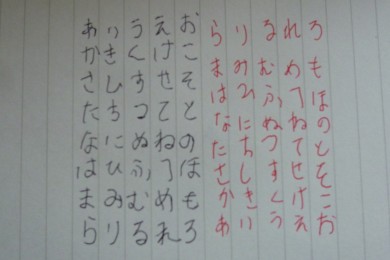 あいうえお
かきくけこ
さしすせそ
たちつてと
なにぬねの
はひふへほ
まみむめも
らりるれろ
らりるれろ
まみむめも
はひふへほ
なにぬねの
たちつてと
さしすせそ
かきくけこ
あいうえお